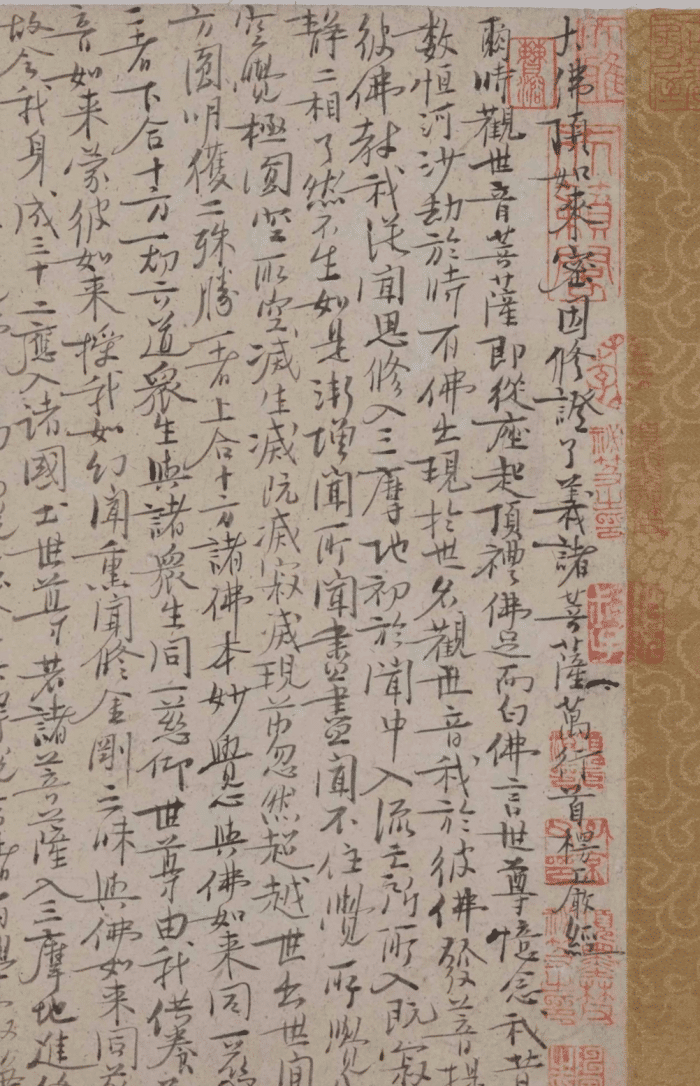 大佛頂如來密因修證了義諸菩薩萬行首楞嚴經
爾時觀世音菩薩即從座起頂禮佛足而白佛言世尊憶念我昔
數恒河沙劫於時有佛出現於世名觀世音我於彼佛發菩提
彼佛教我從聞思修入三摩地初於聞中入流亡所所入既寂
靜二相了然不生如是漸增聞所聞盡盡聞不住覺所覺
空覺極圓空所空滅生滅既滅寂滅現前忽然超越世出世間
方圓明獲二殊勝一者上合十方諸佛本妙覺心與佛如來同一慈
二者下合十方一切六道衆生與諸衆生同一悲仰世尊由我供養
音如來蒙彼如來授我如幻聞熏聞修金剛三昧與佛如來同慈
故令我身成三十二應入諸國土世尊若諸菩薩入三摩地進